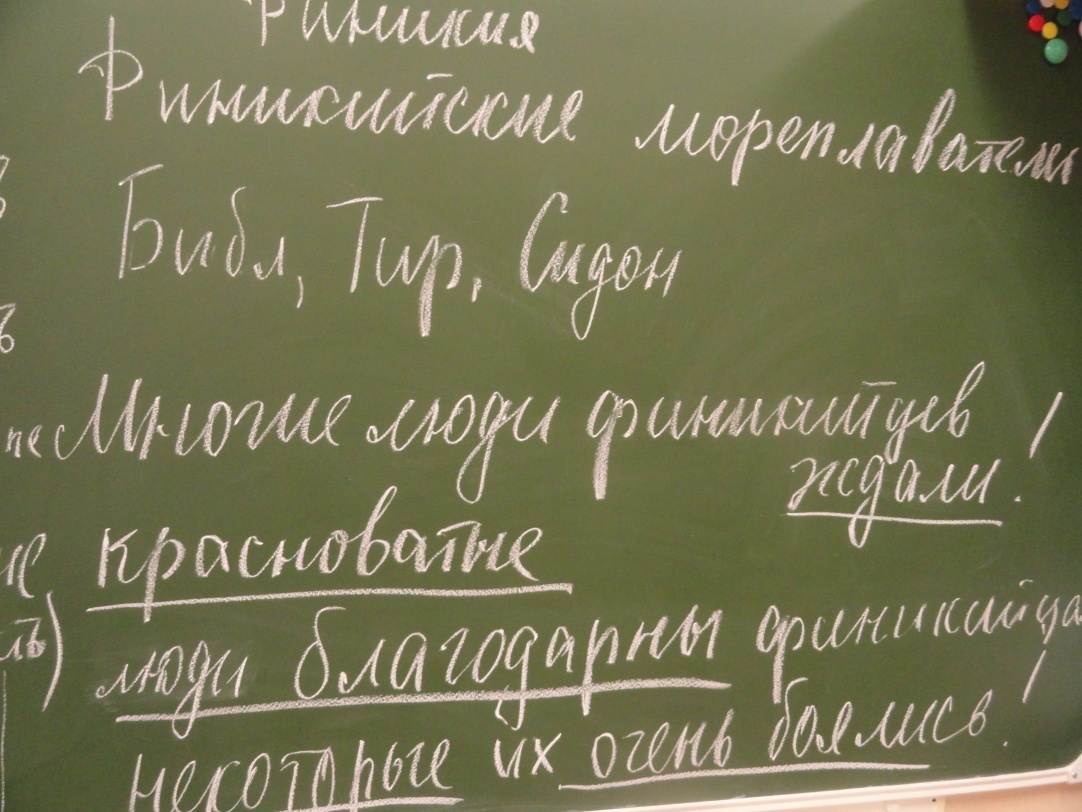 Финикия
Финикийские мореплаватели
Библ, Тир, Сидон
Многие люди финикийцев /
ждали.
красноватые
люди благодарны финикийца
некоторые их очень боялись! /